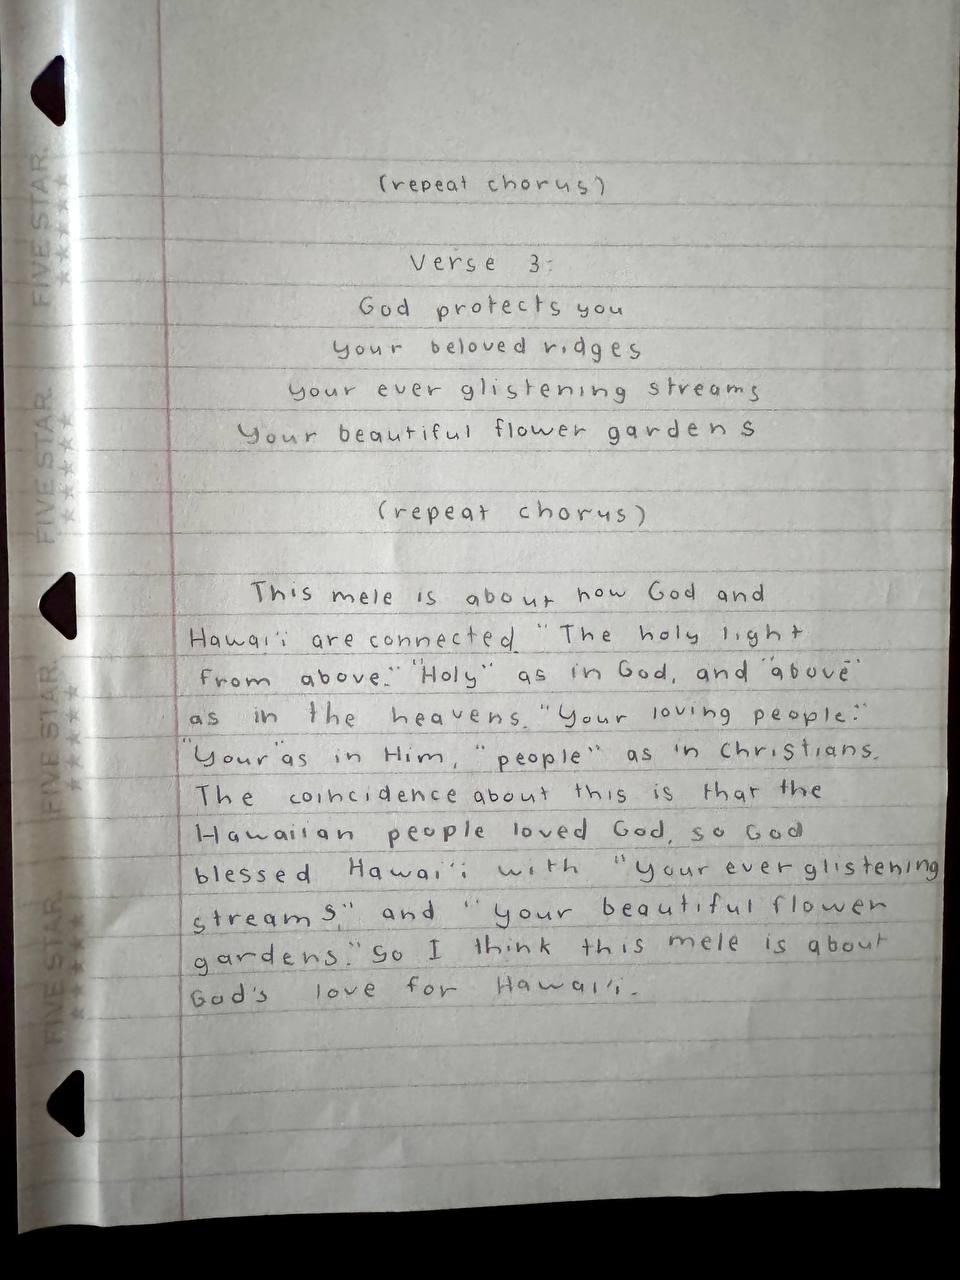 (repeat chorus)
Verse 3:
God protects you
Your beloved ridges
Your ever glistening streams
Your beautiful flower gardens
(repeat chorus)
This mele is about how God and
Hawai'i are connected. "The holy light
from above." "Holy" as in God, and "above"
as in the heavens. "Your loving people."
"Your" as in Him, "people" as in Christians.
The coincidence about this is that the
Hawaiian people loved God, so God
blessed Hawai'i with "your ever glistening
streams," and "your beautiful flower
gardens." So I think this mele is about
God's love for Hawai'i.
FIVE STAR.
FIVE STAR.
FIVE STAR.
FIVE STAR.